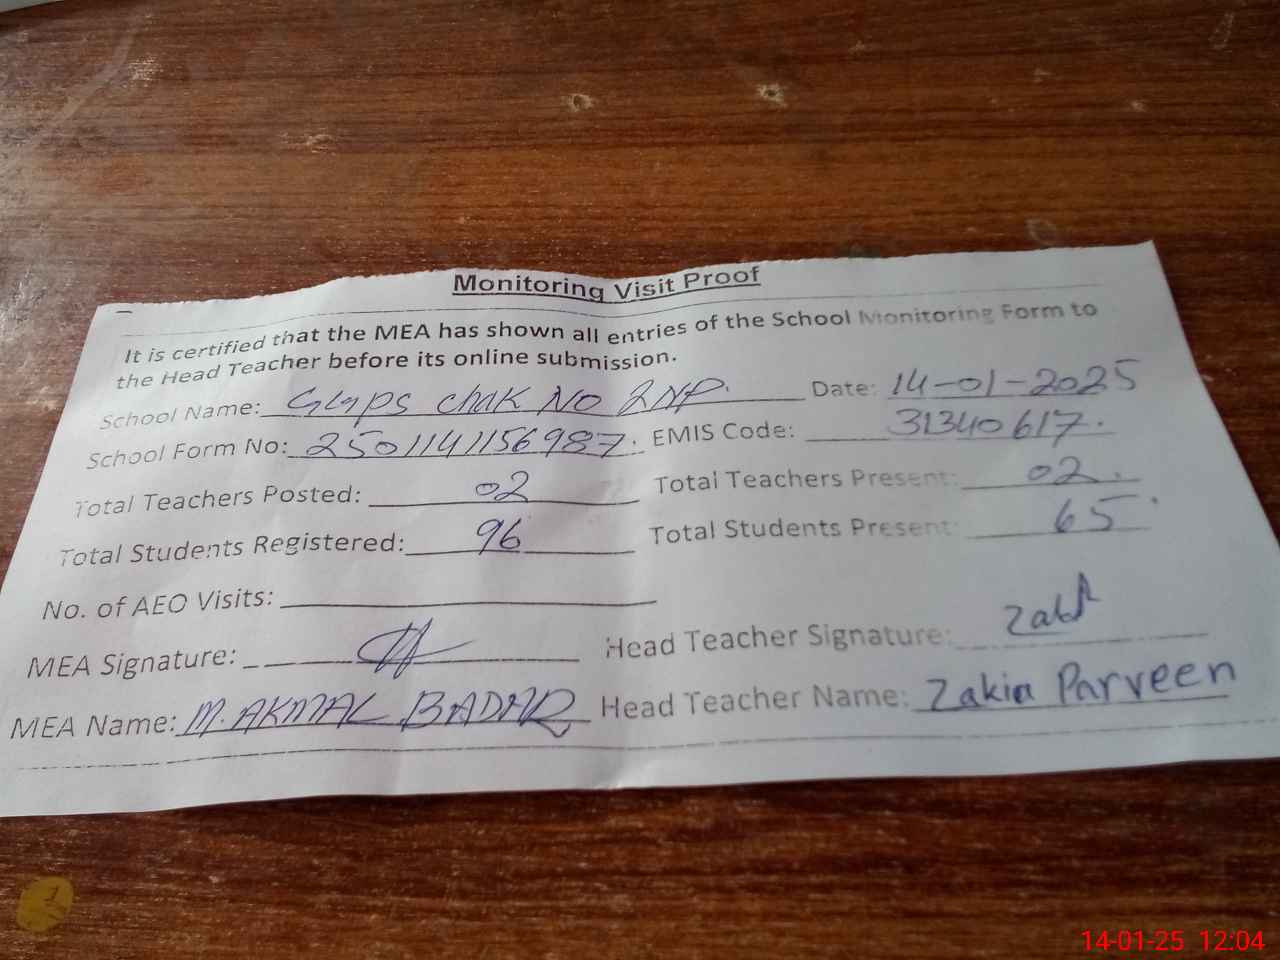 Monitoring Visit Proof
It is certified that the MEA has shown all entries of the School Monitoring Form to
the Head Teacher before its online submission.
School Name: GGPS chak No 2NP. Date: 14-01-2025
School Form No: 2501141156987. EMIS Code: 31340617.
Total Teachers Posted: 02 Total Teachers Present: 02.
Total Students Registered: 96 Total Students Present: 65
No. of AEO Visits:
MEA Signature: Head Teacher Signature:
MEA Name: M. AKMAL BADAR Head Teacher Name: Zakia Parveen
14-01-25 12:04